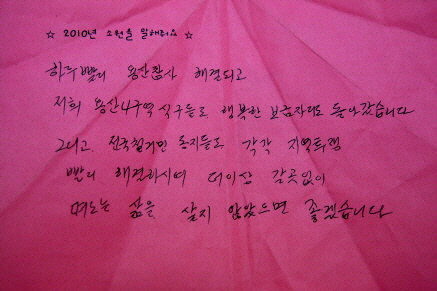 ☆ 2010년의 소원을 말해줘요 ☆
하루 빨리 용산참사 해결되고
저희 용산4구역 식구들도 행복한 보금자리로 돌아갔습니다
그리고 전주철거민 동지들도 각각 지역투쟁
빨리 해결하시여 더이상 갈곳없이
떠도는 삶을 살지 않았으면 좋겠습니다